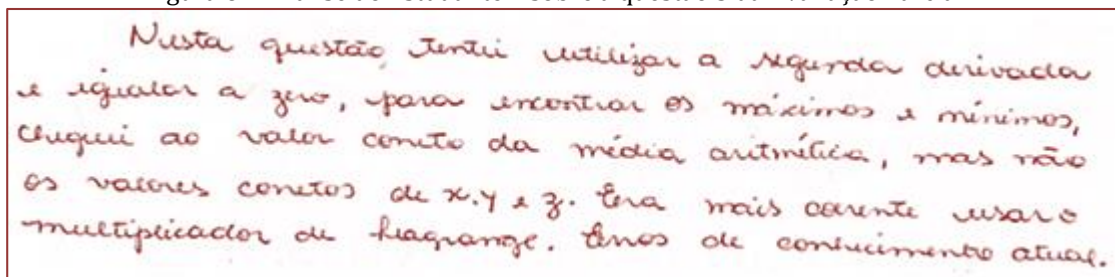 Nesta questão, tentei utilizar a segunda derivada
e igualar a zero, para encontrar os máximos e mínimos,
cheguei ao valor correto da média aritmética, mas não
os valores corretos de x.y e z. Era mais coerente usar o
multiplicador de Lagrange. Erros de conhecimento atual.